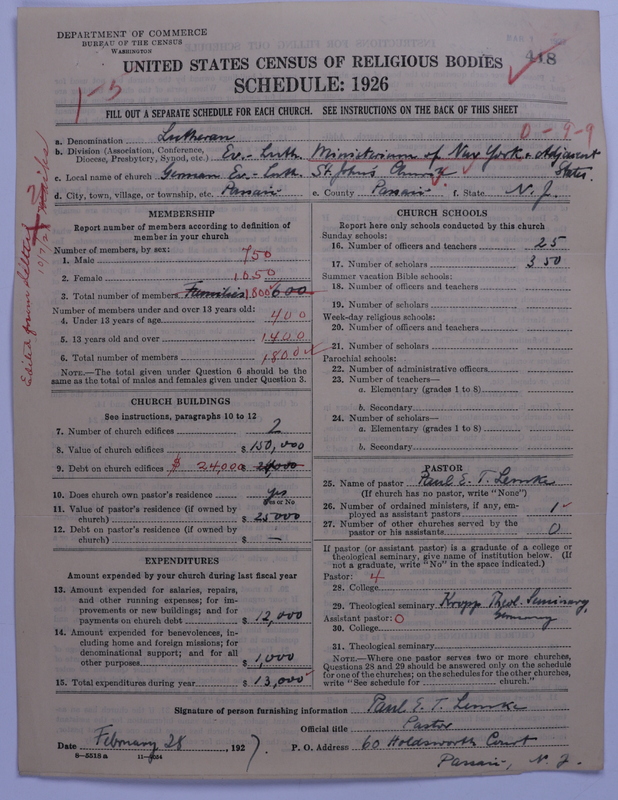 DEPARTMENT OF COMMERCE
BUREAU OF THE CENSUS
WASHINGTON
UNITED STATES CENSUS OF RELIGIOUS BODIES
418
SCHEDULE: 1926
1-5
FILL OUT A SEPARATE SCHEDULE FOR EACH CHURCH. SEE INSTRUCTIONS ON THE BACK OF THIS SHEET
0-9-9
a. Denomination Lutheran
b. Division (Association, Conference, Diocese, Presbytery, Synod, etc.) Ev.-Luth. Ministerium of New York & Adjacent States.
c. Local name of church German Ev.-Luth. St. John's Church
d. City, town, village, or township, etc. Passaic e. County Passaic f. State N. J.
Edited from letter
MEMBERSHIP
Report number of members according to definition of member in your church
Number of members, by sex:
1. Male 750
2. Female 1050
3. Total number of members Families 1800 600
Number of members under and over 13 years old:
4. Under 13 years of age 400
5. 13 years old and over 1400
6. Total number of members 1800
NOTE.—The total given under Question 6 should be the same as the total of males and females given under Question 3.
CHURCH BUILDINGS
See instructions, paragraphs 10 to 12
7. Number of church edifices 2
8. Value of church edifices $ 150,000
9. Debt on church edifices $ 24,000 $ 24000
10. Does church own pastor's residence Yes
Yes or No
11. Value of pastor's residence (if owned by church) $ 25000
12. Debt on pastor's residence (if owned by church) $ —
EXPENDITURES
Amount expended by your church during last fiscal year
13. Amount expended for salaries, repairs, and other running expenses; for improvements or new buildings; and for payments on church debt $ 12,000
14. Amount expended for benevolences, including home and foreign missions; for denominational support; and for all other purposes $ 1,000
15. Total expenditures during year $ 13,000
CHURCH SCHOOLS
Report here only schools conducted by this church
Sunday schools:
16. Number of officers and teachers 25
17. Number of scholars 350
Summer vacation Bible schools:
18. Number of officers and teachers
19. Number of scholars
Week-day religious schools:
20. Number of officers and teachers
21. Number of scholars
Parochial schools:
22. Number of administrative officers
23. Number of teachers—
a. Elementary (grades 1 to 8)
b. Secondary
24. Number of scholars—
a. Elementary (grades 1 to 8)
b. Secondary
PASTOR
25. Name of pastor Paul E. T. Lemke
(If church has no pastor, write "None")
26. Number of ordained ministers, if any, employed as assistant pastors 1
27. Number of other churches served by the pastor or his assistants 0
If pastor (or assistant pastor) is a graduate of a college or theological seminary, give name of institution below. (If not a graduate, write "No" in the space indicated.)
Pastor: 4
28. College
29. Theological seminary Kropp Theol. Seminary, Germany
Assistant pastor: 0
30. College
31. Theological seminary
NOTE.—Where one pastor serves two or more churches, Questions 28 and 29 should be answered only on the schedule for one of the churches; on the schedules for the other churches, write "See schedule for church."
Signature of person furnishing information Paul E. T. Lemke
Official title Pastor
Date February 28, 1927. P. O. Address 60 Holdsworth Court
Passaic, N. J.
8—5518a